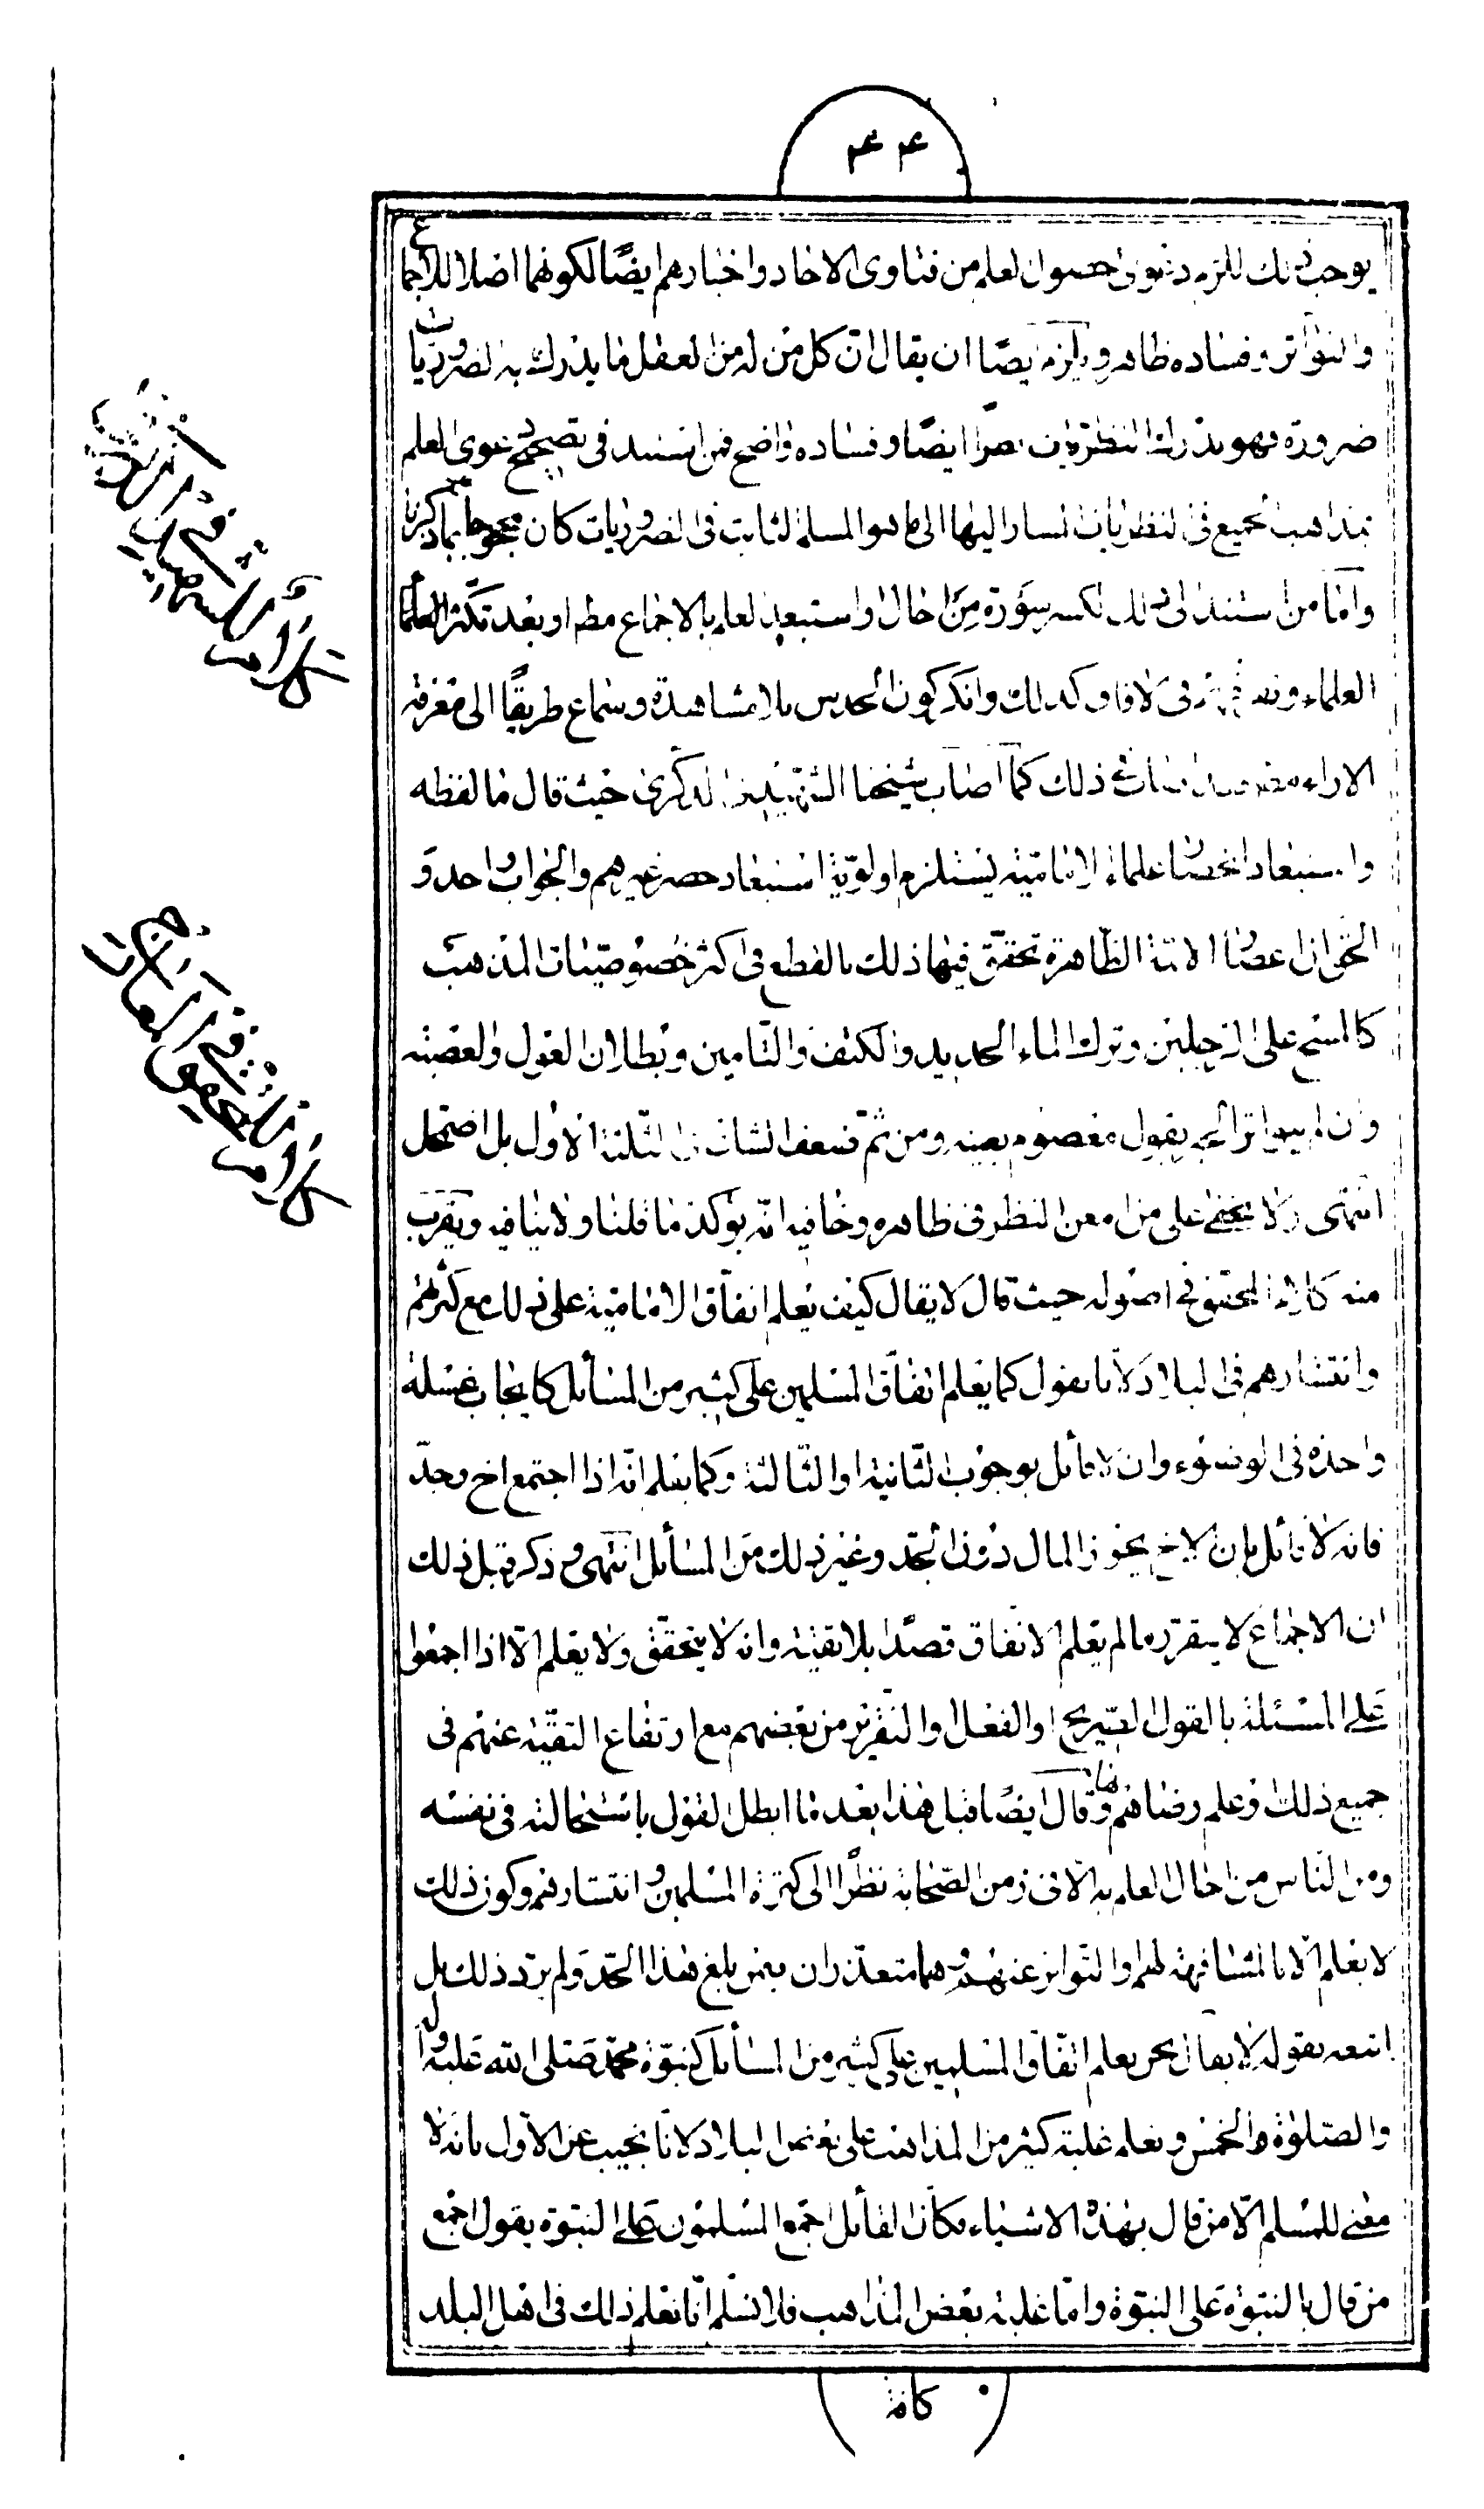 ۴۴
يوجب ذلك للزم دعوى حصول العلم من فتاوى الاحاد واخبارهم ايضًا لكونهما اصلا للاجماع
والتواتر وفساده ظاهر ويلزم ايضًا ان يقال ان كل من له من العقل ما يدرك به الضروريات
ضرورة فهو يدرك النظريات ايضًا وفساده واضح فمن استند فى تصحيح دعوى العلم
بمذاهب الجميع فى النظريات المشار اليها الى ما هو المسلم الثابت فى الضروريات كان محجوجا بما ذكرنا
وامّا من استند الى ذلك لكسر سورة من احال او استبعد العلم بالاجماع مطم او بعد تكثر العلماء
العلماء فى الافاق كذلك وانكر كون الحدس بلا مشاهدة وسماع طريقًا الى معرفة
الاراء ذلك كما اصاب شيخنا الشهيد فى الذكرى حيث قال ما لفظه
واستبعاد انحصار علماء الاماميّة يستلزم اولويّة استبعاد حصر غيرهم والجواب واحد و
الحق ان اعصار الائمة الظاهرة تحقق فيها ذلك بالقطع فى اكثر خصوصيّات المذهب
كالمسح على الرجلين وترك الماء الجديد والكتف والتّامين وبطلان العول والعصبة
وان لم يتواتر الخبر بقول معصوم بعينه ومن ثم ضعف الشان فى الثلثة الاول بل اضمحل
انتهى ولا يخفى على من امعن النظر فى ظاهره وخافيه انه يؤكد ما قلنا ولا ينافيه ويقرب
منه كلام المحقق فى اصوله حيث قال لا يقال كيف يعلم اتفاق الاماميّة على ذلك مع كثرتهم
وانتشارهم فى البلاد لانا نقول كما يعلم اتفاق المسلمين على كثير من المسائل كايجاب غسلة
واحدة فى الوضوء وان لا قائل بوجوب الثانية او الثالثة وكما يعلم انه اذا اجتمع اخ وجدّ
فانه لا قائل بان الاخ يحوز المال دون الجد وغير ذلك من المسائل انتهى وذكر قبل ذلك
ان الاجماع لا يتقرر ما لم يعلم الاتفاق قصدًا بلا تقيّة وانه لا يتحقق ولا يعلم الا اذا اجمعوا
على المسئلة بالقول الصّريح او الفعل والتقرير من بعضهم مع ارتفاع التقيّة عنهم فى
جميع ذلك وعلم رضاهم وقال ايضًا قبل هذا بعد ما ابطل القول باستحالته فى نفسه
ومن النّاس من احال العلم به الا فى زمن الصّحابة نظرًا الى كثرة المسلمين وانتشارهم وكون ذلك
لا يعلم الا بالمشافهة لهم والتواتر عنهم وهما متعذران فيمن بلغ هذا الحدّ ولم يرد ذلك بل
اتبعه بقوله لا يقال نحن نعلم اتفاق المسلمين على كثير من المسائل كنبوّة محمّد صلى الله عليه واله
والصلوة والخمس ونعلم غلبة كثير من المذاهب على بعض البلاد لانا نجيب عن الاول بانه لا
معنى للمسلم الا من قال بهذه الاشياء فكان القائل اجتمع المسلمون على النبوة يقول اجتمع
من قال بالنبوة على النبوة وامّا غلبة بعض المذاهب فلا نسلم انا نعلم ذلك فى اهل البلد
كافة